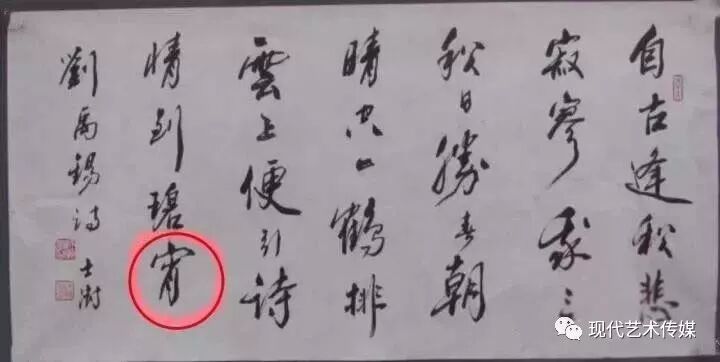 自古逢秋悲
寂寥我言
秋日勝春朝
晴空一鶴排
雲上便引詩
情到碧宵
劉禹錫詩
士澍
现代艺术传媒